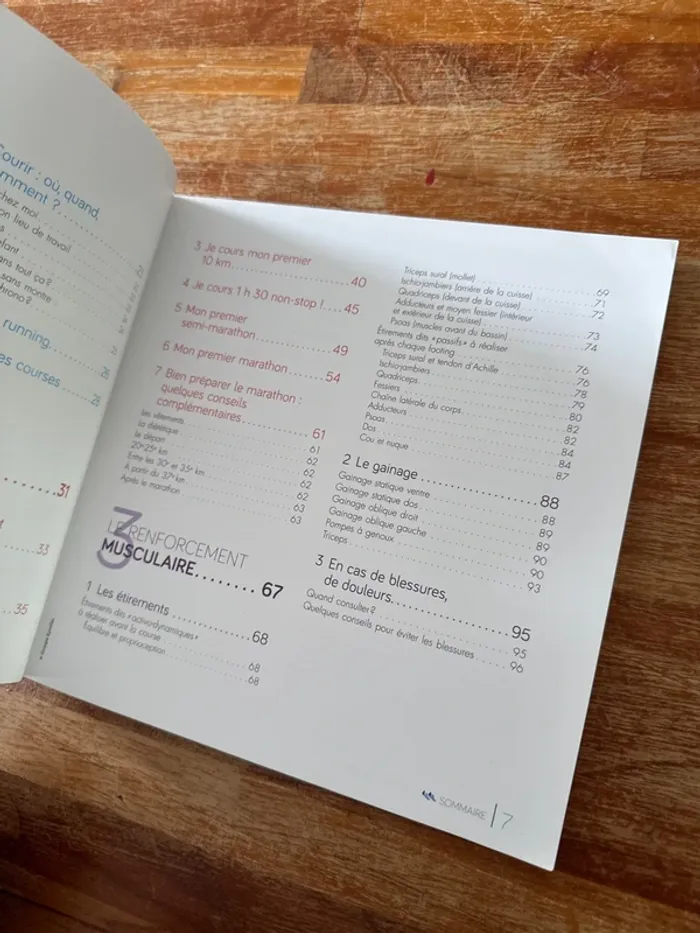 Courir : où, quand,
comment ?
chez moi
lieu de travail
sans tout ça ?
sans montre
chrono ?
running
courses
26
28
31
33
35
3 Je cours mon premier
10 km 40
4 Je cours 1 h 30 non-stop ! 45
5 Mon premier
semi-marathon 49
6 Mon premier marathon 54
7 Bien préparer le marathon :
quelques conseils
complémentaires 61
Les vêtements 61
La diététique 62
Le départ 62
20e-25e km 62
Entre les 30e et 35e km 62
À partir du 37e km 63
Après le marathon 63
3
LE RENFORCEMENT
MUSCULAIRE 67
1 Les étirements 68
Étirements dits « activo-dynamiques »
à réaliser avant la course 68
Équilibre et proprioception 68
Triceps sural (mollet) 69
Ischio-jambiers (arrière de la cuisse) 71
Quadriceps (devant de la cuisse) 72
Adducteurs et moyen fessier (intérieur
et extérieur de la cuisse) 73
Psoas (muscles avant du bassin) 74
Étirements dits « passifs » à réaliser
après chaque footing 76
Triceps sural et tendon d'Achille 76
Ischio-jambiers 78
Quadriceps 79
Fessiers 80
Chaîne latérale du corps 82
Adducteurs 82
Psoas 84
Dos 84
Cou et nuque 87
2 Le gainage 88
Gainage statique ventre 88
Gainage statique dos 89
Gainage oblique droit 89
Gainage oblique gauche 90
Pompes à genoux 90
Triceps 93
3 En cas de blessures,
de douleurs 95
Quand consulter ? 95
Quelques conseils pour éviter les blessures 96
SOMMAIRE | 7